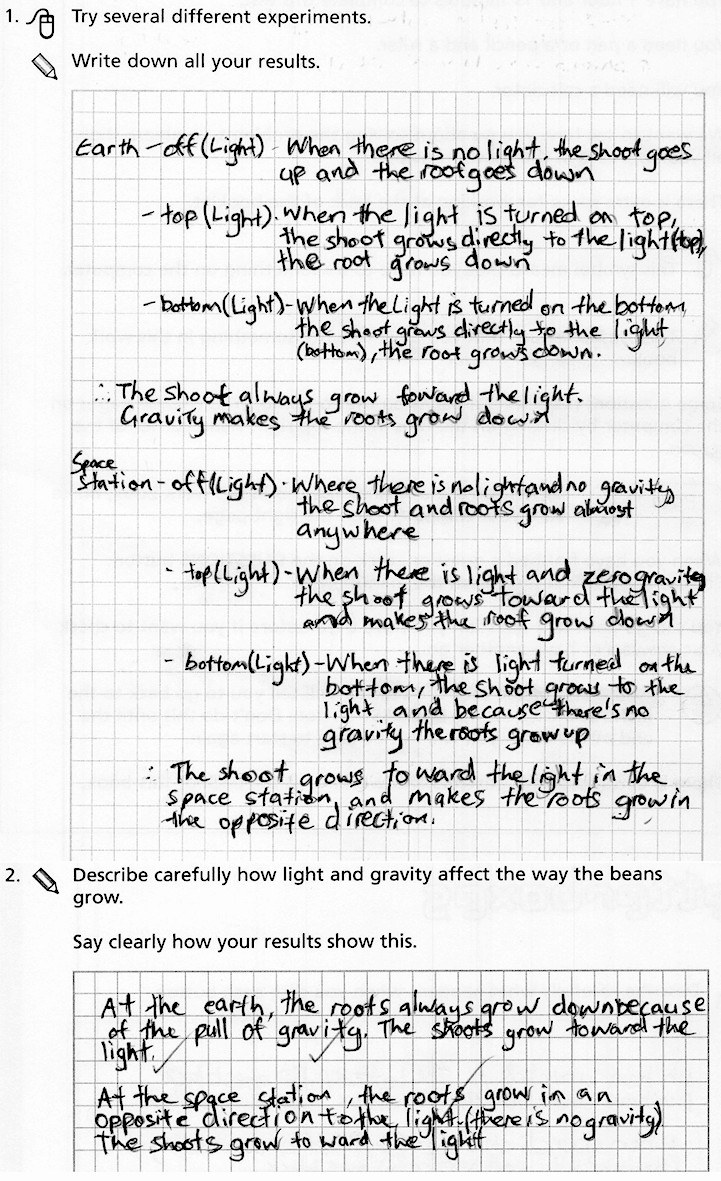 1. Try several different experiments.
Write down all your results.
Earth - off (Light) - When there is no light, the shoot goes
up and the roof goes down
- top (Light). When the light is turned on top,
the shoot grows directly to the light (top),
the root grows down
- bottom (Light) - When the Light is turned on the bottom,
the shoot grows directly to the light
(bottom), the root grows down.
∴ The shoot always grow foward the light.
Gravity makes the roots grow down
Space
station - off (Light) - Where there is no light and no gravity,
the shoot and roots grow almost
anywhere
- top (Light) - When there is light and zero gravity
the shoot grows toward the light
and makes the roof grow down
- bottom (Light) - When there is light turned on the
bottom, the shoot grows to the
light and because there's no
gravity the roots grow up
: The shoot grows to ward the light in the
space station, and makes the roots grow in
the opposite direction.
2. Describe carefully how light and gravity affect the way the beans
grow.
Say clearly how your results show this.
At the earth, the roots always grow down because
of the pull of gravity. The shoots grow toward the
light.
At the space station, the roots grow in an
opposite direction to the light. (there is no gravity)
The shoots grow to ward the light